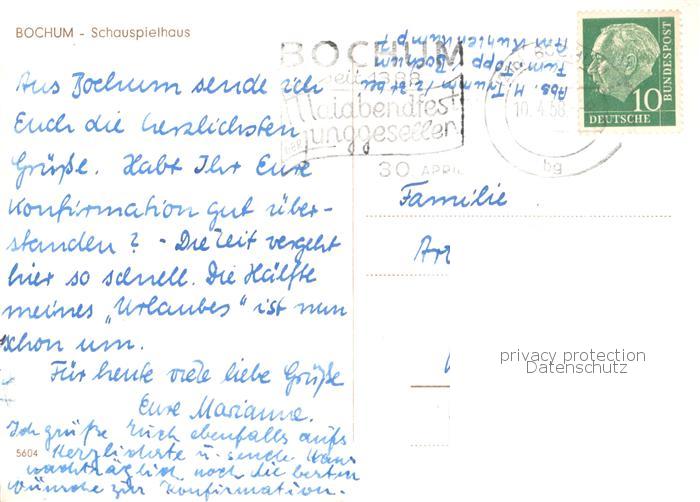 BOCHUM - Schauspielhaus
Aus Bochum sende ich
Euch die herzlichsten
Grüße. Habt Ihr Eure
Konfirmation gut über-
standen? - Die Zeit vergeht
hier so schnell. Die Hälfte
meines „Urlaubes" ist nun
schon um.
Für heute viele liebe Grüße
Eure Marianne.
Ich grüße Euch ebenfalls aufs
Herzlichste u. sende
nachträglich noch die besten
Wünsche zur Konfirmation.
5604
Abs. H.
Bochum
BOCHUM
seit 1388
Maiabendfest
DER Junggesellen
30. APRIL
10.4.58.
bg
10
DEUTSCHE
BUNDESPOST
Familie
privacy protection
Datenschutz